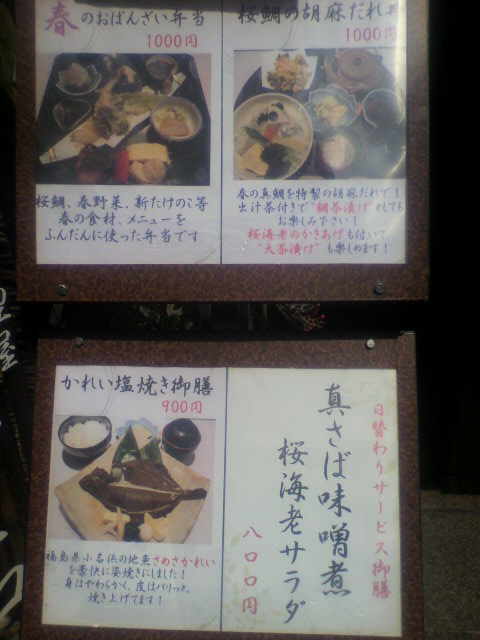 春のおばんざい弁当
1000円
桜鯛、春野菜、新たけのこ等
春の食材、メニューを
ふんだんに使った弁当です
桜鯛の胡麻だれ丼
1000円
春の真鯛を特製の胡麻だれで!
出汁茶付きで"鯛茶漬け"としても
お楽しみ下さい!
桜海老のかきあげも付いて
"天茶漬け"も楽しめます!
かれい塩焼き御膳
900円
福島県小名浜の地魚さめさかれい
を豪快に姿焼きにしました!
身はやわらかく、皮はパリっと、
焼き上げてます!
日替わりサービス御膳
真さば味噌煮
桜海老サラダ
八〇〇円